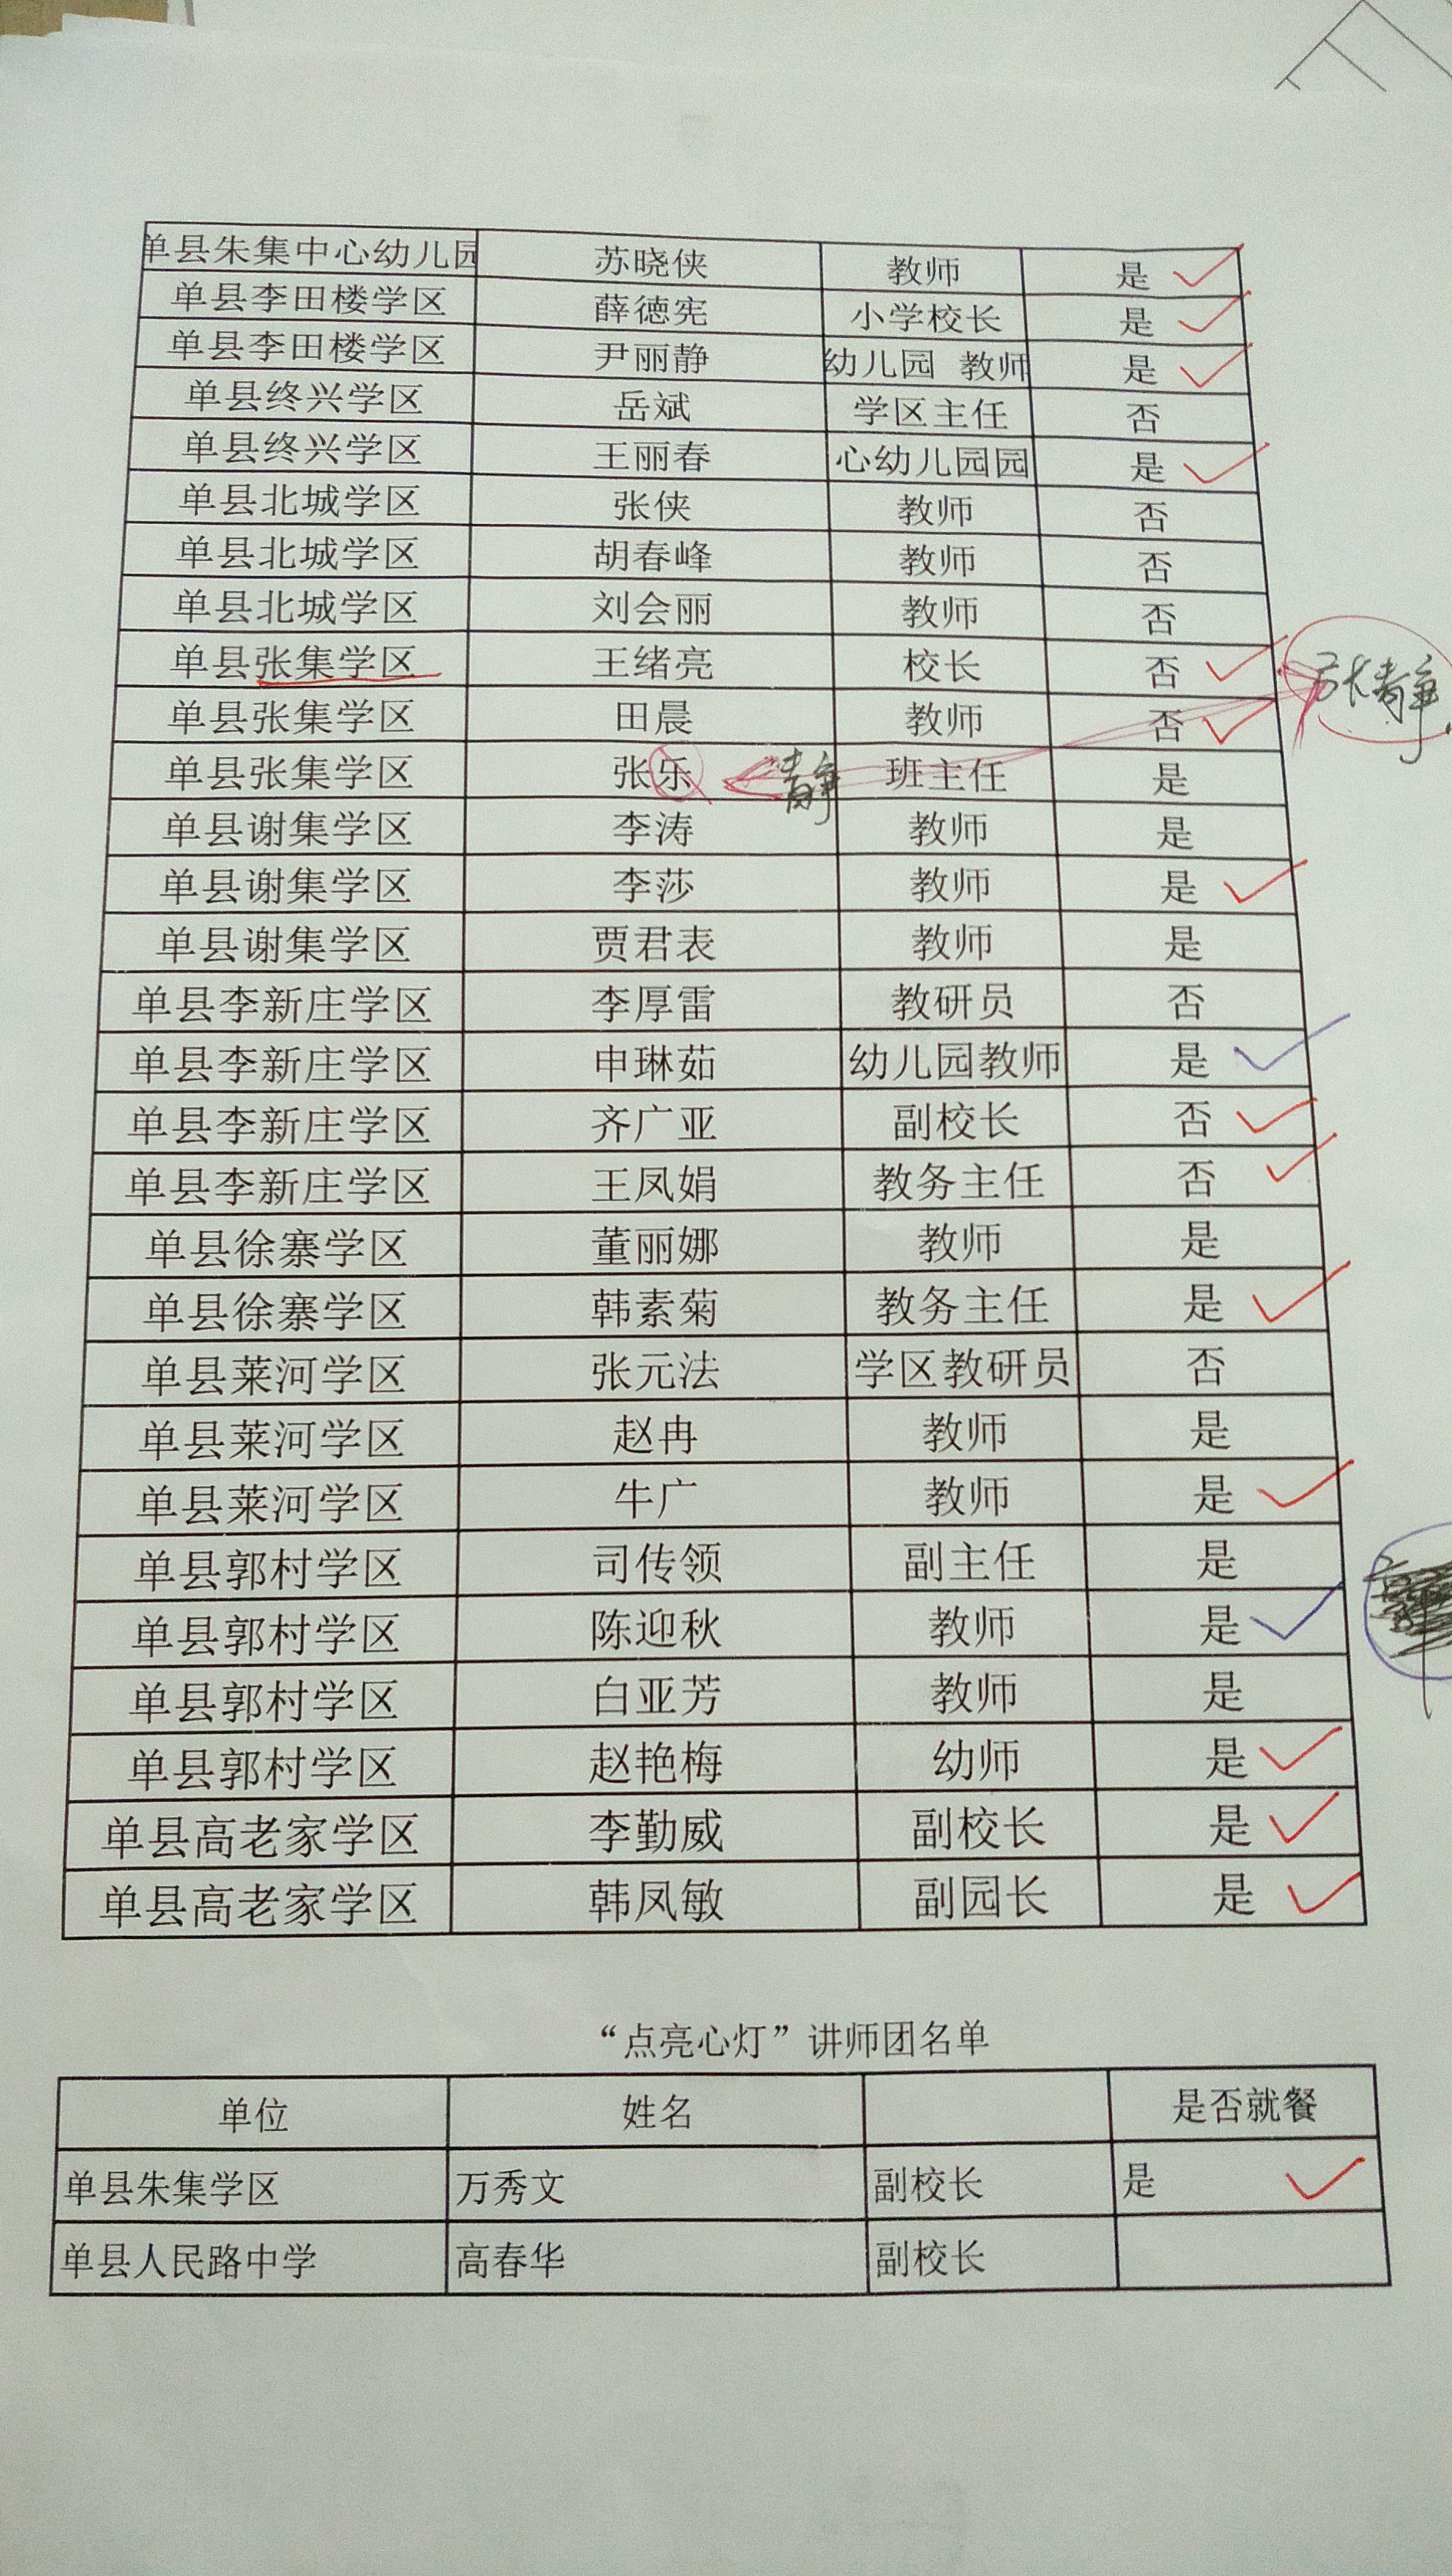 单县朱集中心幼儿园 苏晓侠 教师 是
单县李田楼学区 薛德宪 小学校长 是
单县李田楼学区 尹丽静 幼儿园 教师 是
单县终兴学区 岳斌 学区主任 否
单县终兴学区 王丽春 心幼儿园园 是
单县北城学区 张侠 教师 否
单县北城学区 胡春峰 教师 否
单县北城学区 刘会丽 教师 否
单县张集学区 王绪亮 校长 否
单县张集学区 田晨 教师 否
张静
单县张集学区 张乐 静 班主任 是
单县谢集学区 李涛 教师 是
单县谢集学区 李莎 教师 是
单县谢集学区 贾君表 教师 是
单县李新庄学区 李厚雷 教研员 否
单县李新庄学区 申琳茹 幼儿园教师 是
单县李新庄学区 齐广亚 副校长 否
单县李新庄学区 王凤娟 教务主任 否
单县徐寨学区 董丽娜 教师 是
单县徐寨学区 韩素菊 教务主任 是
单县莱河学区 张元法 学区教研员 否
单县莱河学区 赵冉 教师 是
单县莱河学区 牛广 教师 是
单县郭村学区 司传领 副主任 是
单县郭村学区 陈迎秋 教师 是
单县郭村学区 白亚芳 教师 是
单县郭村学区 赵艳梅 幼师 是
单县高老家学区 李勤威 副校长 是
单县高老家学区 韩凤敏 副园长 是
“点亮心灯”讲师团名单
单位 姓名 是否就餐
单县朱集学区 万秀文 副校长 是
单县人民路中学 高春华 副校长